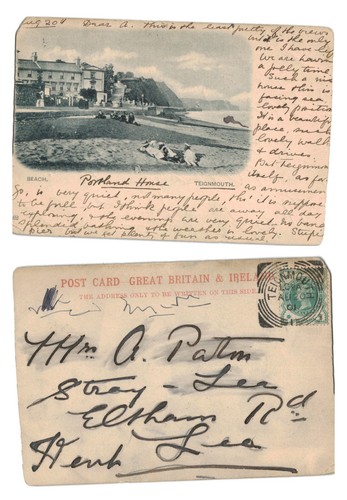 Aug 20th Dear A. This is the least pretty of the views
and is the only
one I have left
We are having
a jolly time
Such a nice
house this is
facing sea
lovely position
It is a beautiful
place, such
lovely walks
& drives.
But Teignmouth
itself as far
as amusement
BEACH, Portland House TEIGNMOUTH.
Go, is very quiet, not many people, tho' it is supposed
to be full but I think people are away all day
exploring, & the evenings are very quiet. No band
Splendid bathing & the weather is lovely.
pier, but we get plenty of fun as usual.
POST CARD GREAT BRITAIN & IRELAND
THE ADDRESS ONLY TO BE WRITTEN ON THIS SIDE
TEIGNMOUTH
AU 20
01
Mrs A. Paton
Stray-Lea
Eltham Rd
Kent Lea